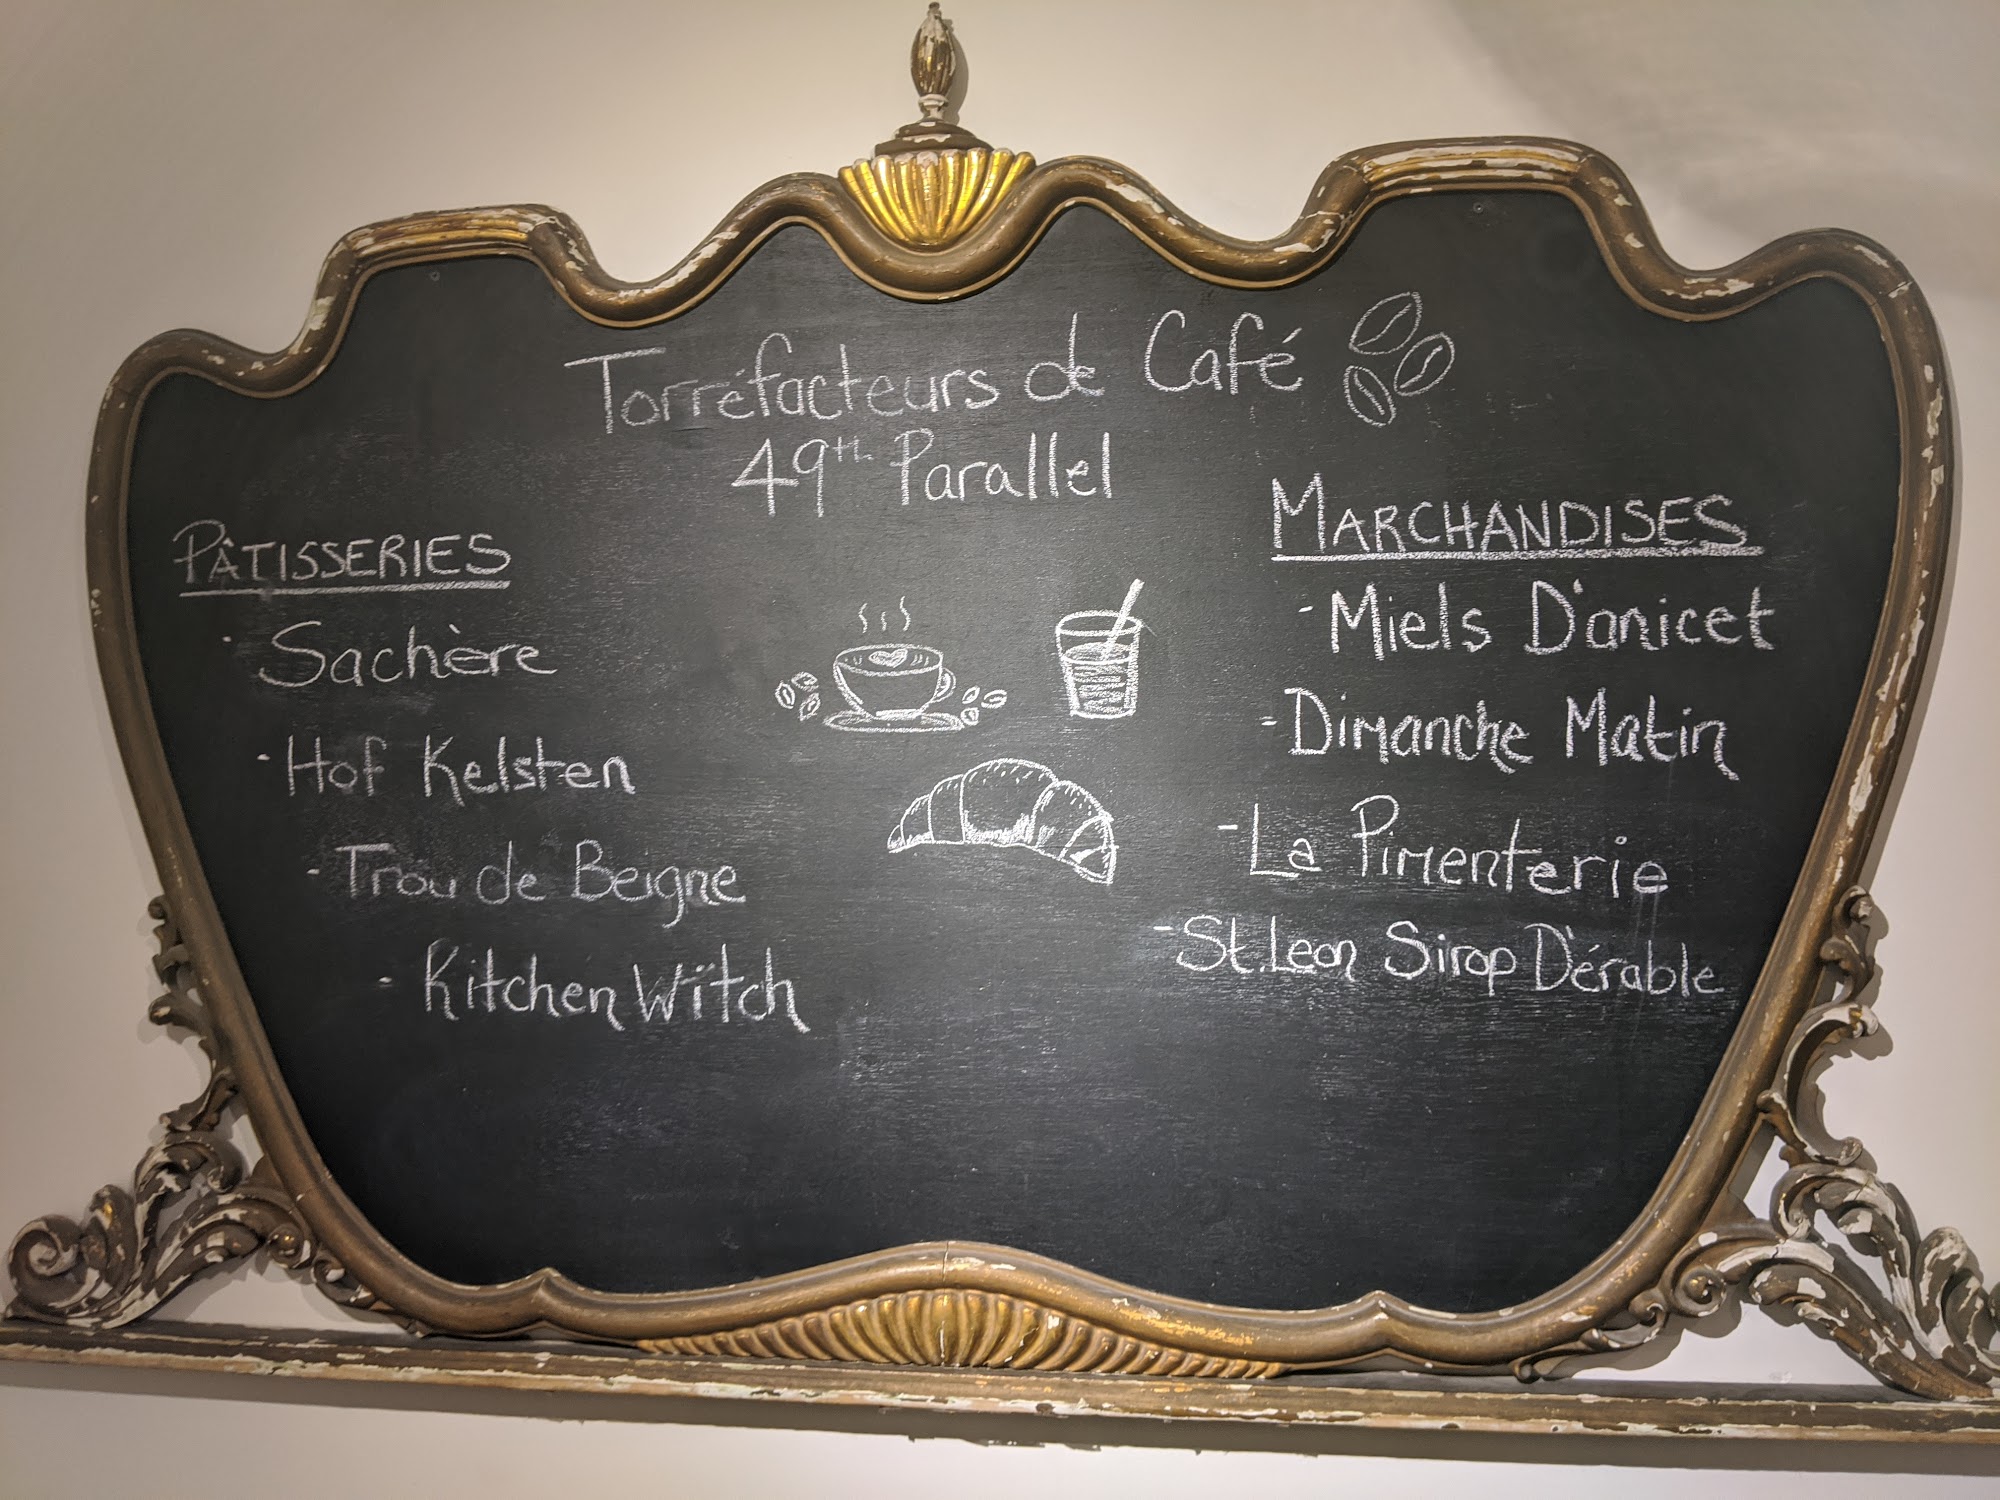 Torréfacteurs de Café
49th Parallel
PÂTISSERIES
· Sachère
· Hof Kelsten
· Trou de Beigne
· Kitchen Witch
MARCHANDISES
- Miels D'anicet
- Dimanche Matin
- La Pimenterie
- St. Leon Sirop D'érable